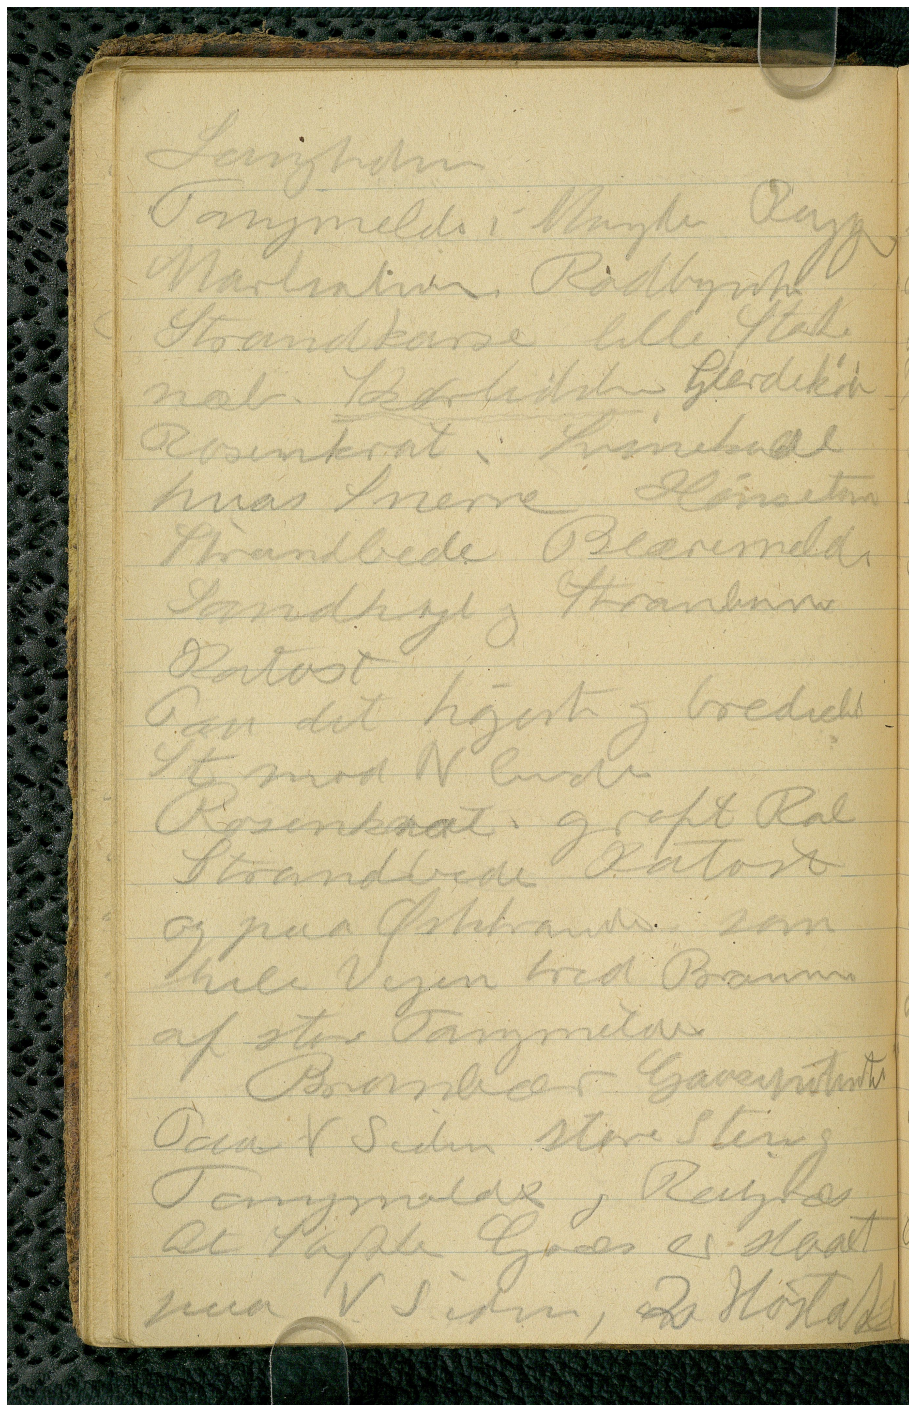 Langholm
Tangmelde i Mngder Rajgr
Marhalm. Rødbynke
Strandkarse lille Stork
næb. Gjerdekør
Rosenkrat. Svinebadl
hvas Snerre Hønsetarm
Strandbede Blæremelde
Sandhejl og Strandarve
Katost
Paa det højest og bredeste
St mod N Ende
Rosenkrat. groft Ral
Strandbede Katost
og paa Øststranden som
hele Vejen bred Bræmme
af stor Tangmelde
Brombær Gaasepotent
Paa V Siden store Sten og
Tangmelde og Rajgræs
At Græs er slaaet
paa V Siden,